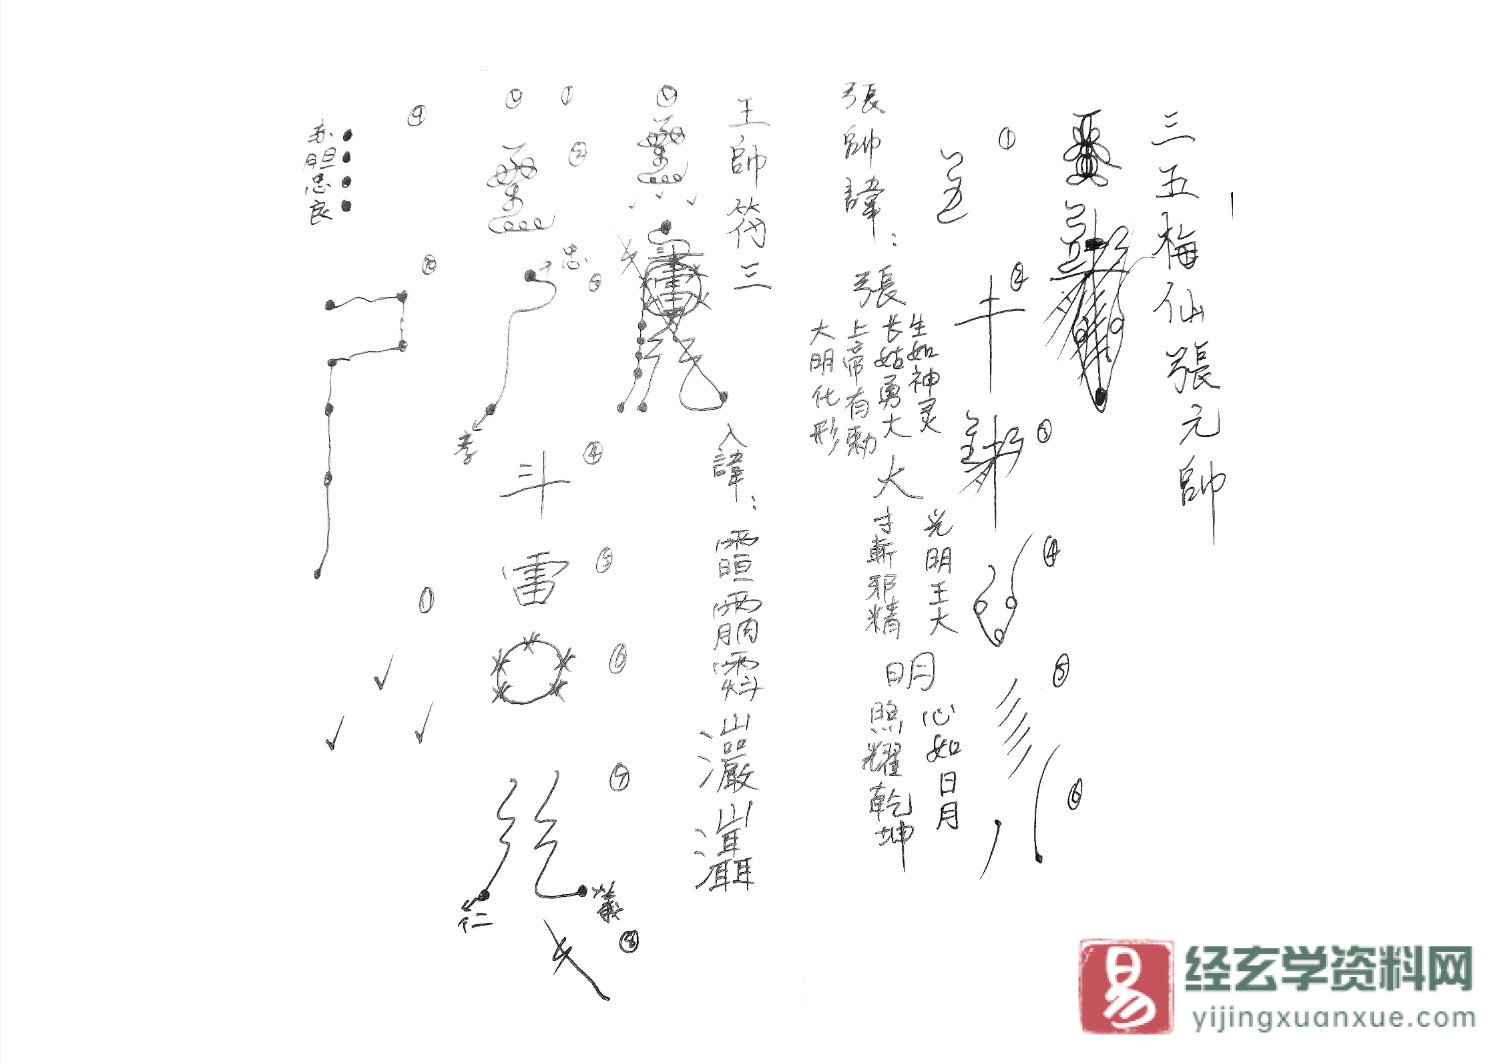 三五梅仙張元帥
①
②
③
④
⑤
⑥
張帥諱：
張
生如神灵
长姑勇大
上帝有勅
大明化形
大
光明王大
寸斬邪精
明
心如日月
照耀乾坤
王帥符三
入諱：
①
②
③
忠
孝
④
斗
⑤
雷
⑥
⑦
仁
義
⑧
⑨
赤胆忠良
⑩
经玄学资料网
易
yijingxuanxue.com